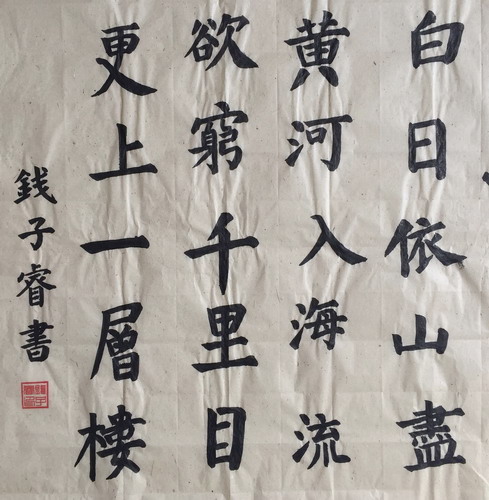 白日依山盡
黄河入海流
欲窮千里目
更上一層樓
錢子睿書